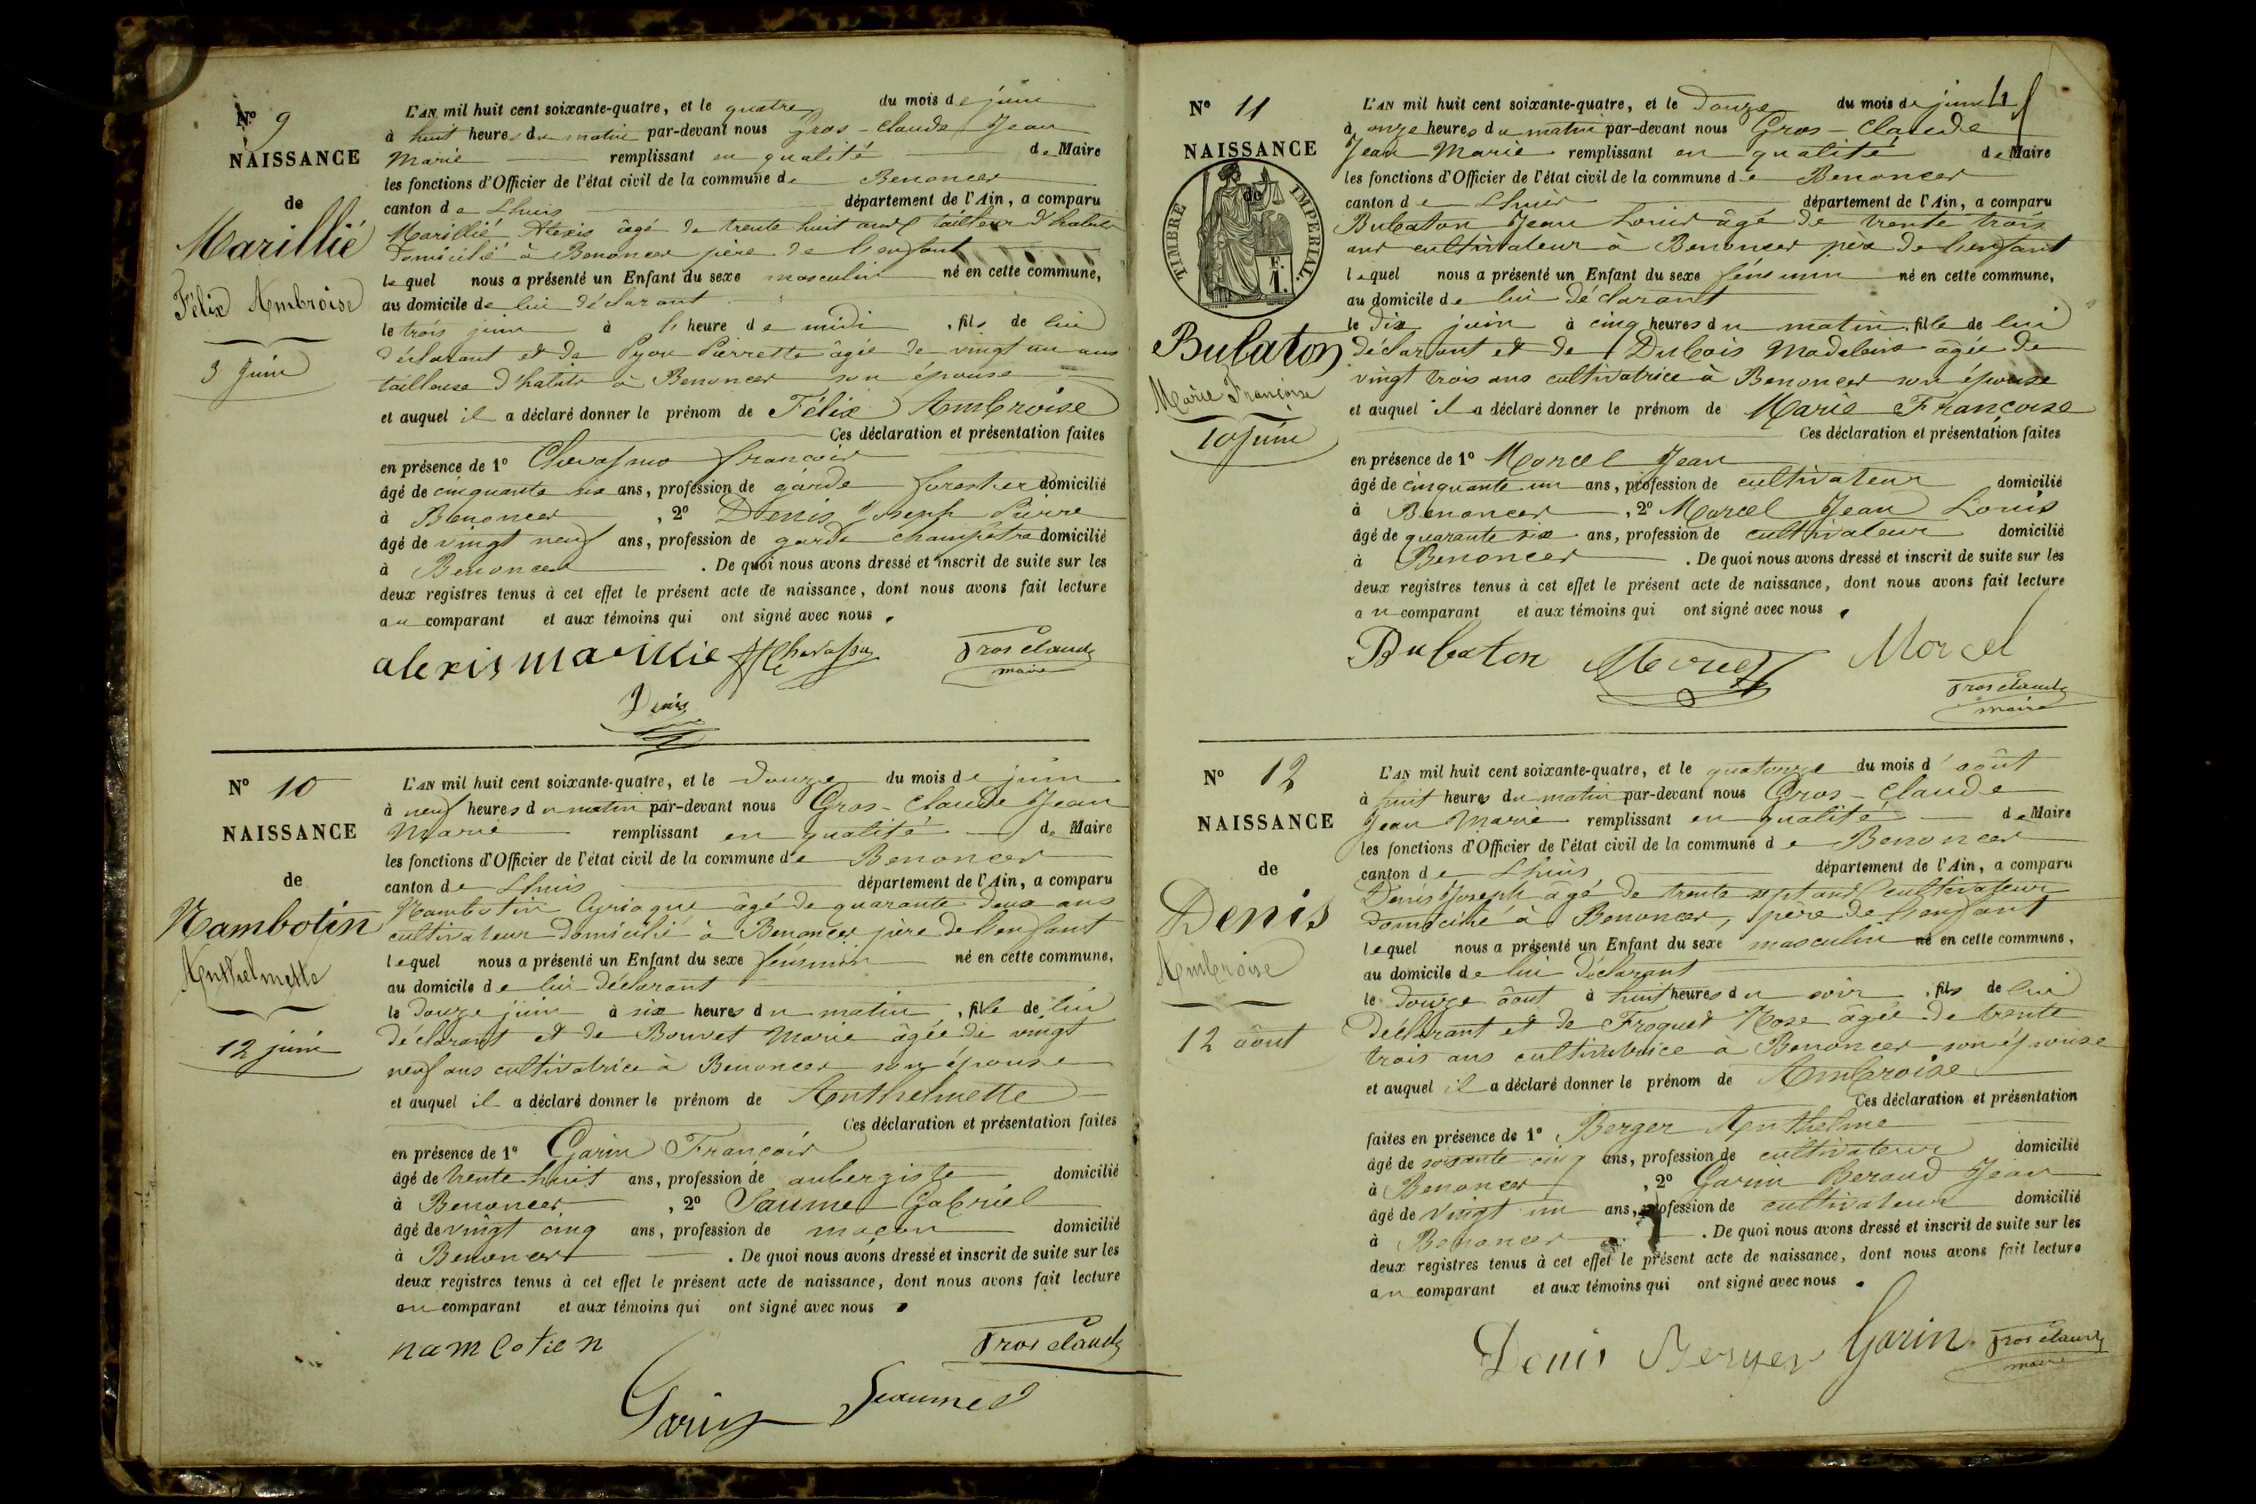 N° 9
NAISSANCE
de
Marillié
Félix Ambroise
3 juin
L'AN mil huit cent soixante-quatre, et le quatre du mois de juin
à huit heures du matin par-devant nous Gros-Claude Jean
Marie remplissant en qualité de Maire
les fonctions d'Officier de l'état civil de la commune de Benonces
canton de Lhuis département de l'Ain, a comparu
Marillié Alexis âgé de trente huit ans tailleur d'habits
domicilié à Benonces père de l'enfant
lequel nous a présenté un Enfant du sexe masculin né en cette commune,
au domicile de lui déclarant
le trois juin à l'heure de midi, fils de lui
déclarant et de Pyon Pierrette âgée de vingt un ans
tailleuse d'habits à Benonces son épouse
et auquel il a déclaré donner le prénom de Félix Ambroise
Ces déclaration et présentation faites
en présence de 1° François
âgé de cinquante six ans, profession de garde forestier domicilié
à Benonces, 2° Denis Joseph Pierre
âgé de vingt neuf ans, profession de garde champêtre domicilié
à Benonces. De quoi nous avons dressé et inscrit de suite sur les
deux registres tenus à cet effet le présent acte de naissance, dont nous avons fait lecture
au comparant et aux témoins qui ont signé avec nous.
alexis marillie Gros claude
maire
Denis
N° 10
NAISSANCE
de
Nambotin
Anthelmette
12 juin
L'AN mil huit cent soixante-quatre, et le douze du mois de juin
à neuf heures du matin par-devant nous Gros-Claude Jean
Marie remplissant en qualité de Maire
les fonctions d'Officier de l'état civil de la commune de Benonces
canton de Lhuis département de l'Ain, a comparu
Nambotin Cyriaque âgé de quarante deux ans
cultivateur domicilié à Benonces père de l'enfant
lequel nous a présenté un Enfant du sexe féminin né en cette commune,
au domicile de lui déclarant
le douze juin à six heures du matin, fille de lui
déclarant et de Bouvet Marie âgée de vingt
neuf ans cultivatrice à Benonces son épouse
et auquel il a déclaré donner le prénom de Anthelmette
Ces déclaration et présentation faites
en présence de 1° Garin François
âgé de trente huit ans, profession de aubergiste domicilié
à Benonces, 2° Jaumet Gabriel
âgé de vingt cinq ans, profession de maçon domicilié
à Benonces. De quoi nous avons dressé et inscrit de suite sur les
deux registres tenus à cet effet le présent acte de naissance, dont nous avons fait lecture
au comparant et aux témoins qui ont signé avec nous.
nambotien Gros claude
Garin Jeaumet
N° 11
NAISSANCE
de
TIMBRE IMPÉRIAL.
F.
1.
Bubaton
Marie Françoise
10 juin
L'AN mil huit cent soixante-quatre, et le douze du mois de juin
à onze heures du matin par-devant nous Gros-Claude
Jean Marie remplissant en qualité de Maire
les fonctions d'Officier de l'état civil de la commune de Benonces
canton de Lhuis département de l'Ain, a comparu
Bubaton Jean Louis âgé de trente trois
ans cultivateur à Benonces père de l'enfant
lequel nous a présenté un Enfant du sexe féminin né en cette commune,
au domicile de lui déclarant
le dix juin à cinq heures du matin, fille de lui
déclarant et de Dubois Madeleine âgée de
vingt trois ans cultivatrice à Benonces son épouse
et auquel il a déclaré donner le prénom de Marie Françoise
Ces déclaration et présentation faites
en présence de 1° Morcel Jean
âgé de cinquante un ans, profession de cultivateur domicilié
à Benonces, 2° Morcel Jean Louis
âgé de quarante six ans, profession de cultivateur domicilié
à Benonces. De quoi nous avons dressé et inscrit de suite sur les
deux registres tenus à cet effet le présent acte de naissance, dont nous avons fait lecture
au comparant et aux témoins qui ont signé avec nous.
Bubaton Morcel Morcel
Gros claude
maire
N° 12
NAISSANCE
de
Denis
Ambroise
12 août
L'AN mil huit cent soixante-quatre, et le quatorze du mois d'août
à huit heures du matin par-devant nous Gros-Claude
Jean Marie remplissant en qualité de Maire
les fonctions d'Officier de l'état civil de la commune de Benonces
canton de Lhuis département de l'Ain, a comparu
Denis Joseph âgé de trente sept ans cultivateur
domicilié à Benonces, père de l'enfant
lequel nous a présenté un Enfant du sexe masculin né en cette commune,
au domicile de lui déclarant
le douze août à huit heures du soir, fils de lui
déclarant et de Froquet Rose âgée de trente
trois ans cultivatrice à Benonces son épouse
et auquel il a déclaré donner le prénom de Ambroise
Ces déclaration et présentation
faites en présence de 1° Berger Anthelme
âgé de soixante cinq ans, profession de cultivateur domicilié
à Benonces, 2° Garin Beraud Jean
âgé de vingt un ans, profession de cultivateur domicilié
à Benonces. De quoi nous avons dressé et inscrit de suite sur les
deux registres tenus à cet effet le présent acte de naissance, dont nous avons fait lecture
au comparant et aux témoins qui ont signé avec nous.
Denis Berger Garin Gros claude
maire